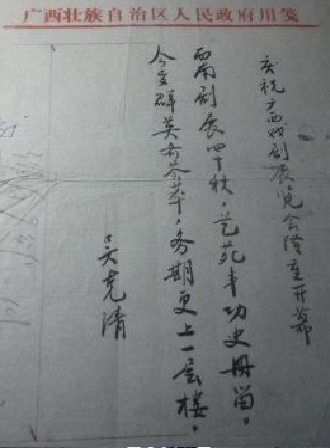 广西壮族自治区人民政府用笺
庆祝广西戏剧展览会隆重开幕
西南剧展四十秋，艺苑丰功史册留。
今喜群英齐荟萃，务期更上一层楼。
吴克清